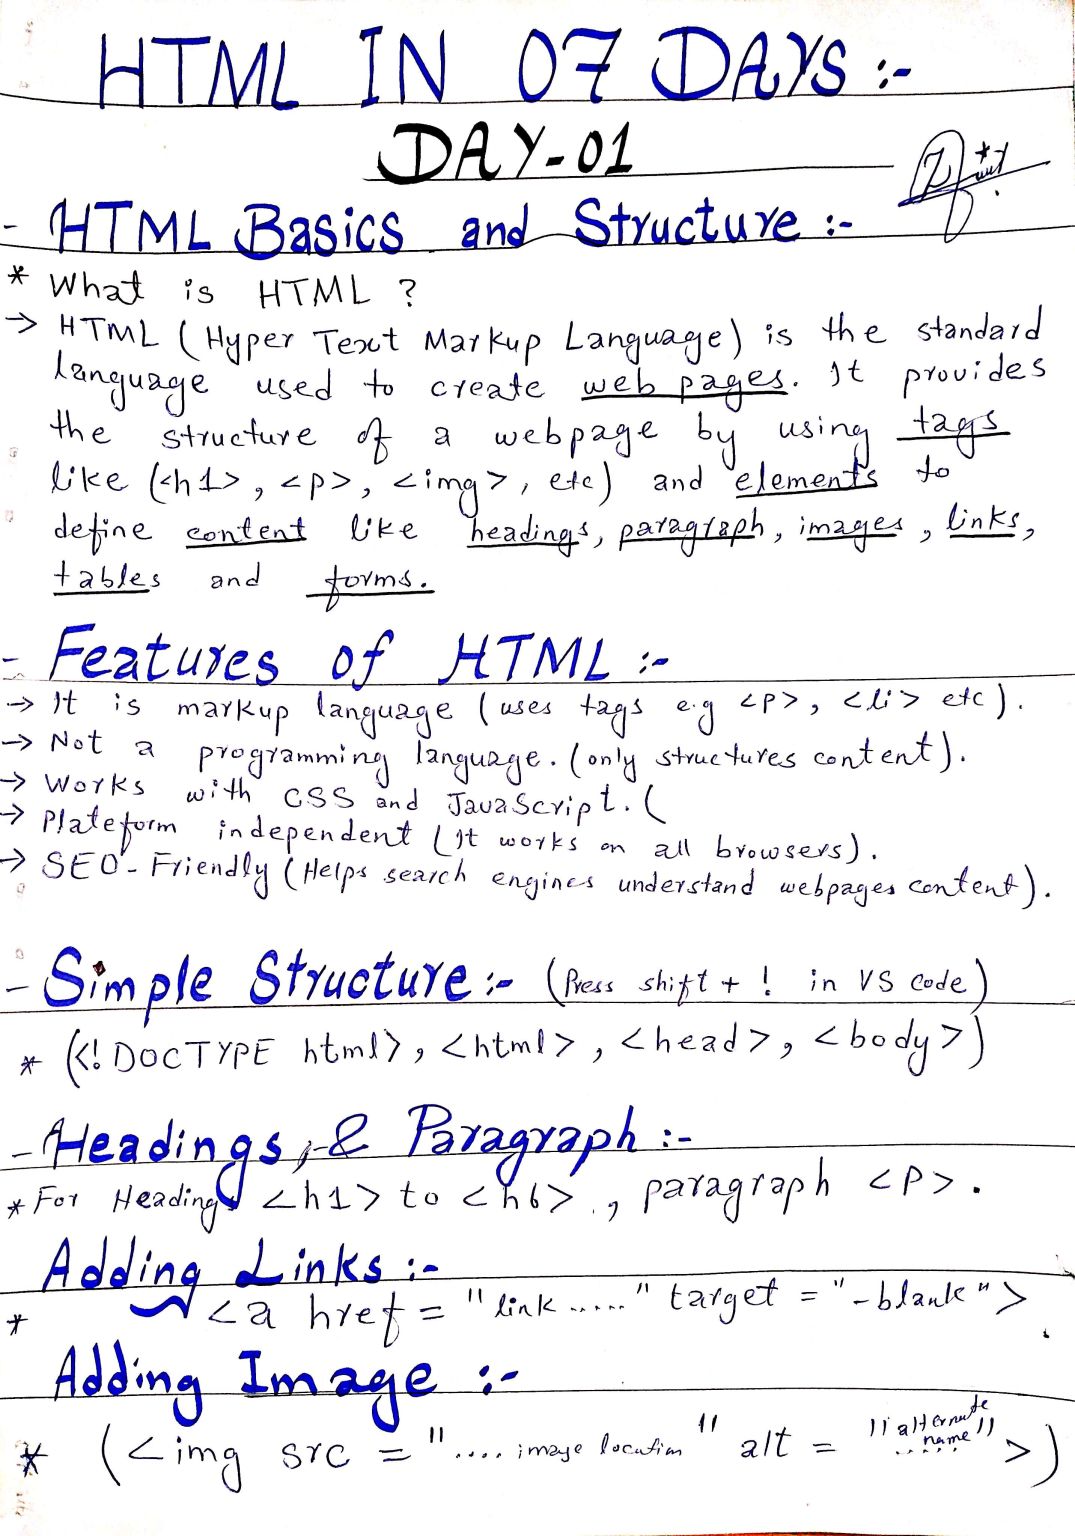 HTML IN 07 DAYS :-
DAY-01
- HTML Basics and Structure :-
* What is HTML ?
→ HTML (Hyper Text Markup Language) is the standard
language used to create web pages. It provides
the structure of a webpage by using tags
like (<h1>, <p>, <img>, etc) and elements to
define content like headings, paragraph, images, links,
tables and forms.
- Features of HTML :-
→ It is markup language (uses tags e.g <p>, <li> etc).
→ Not a programming language. (only structures content).
→ Works with CSS and JavaScript. (
→ Plateform independent (It works on all browsers).
→ SEO-Friendly (Helps search engines understand webpages content).
- Simple Structure :- (Press shift + ! in VS code)
* (<!DOCTYPE html>, <html>, <head>, <body>)
- Headings, & Paragraph :-
* For Headings <h1> to <h6>, paragraph <p>.
Adding Links :-
* <a href = "link ....." target = "-blank">
Adding Image :-
* (<img src = ".... image location" alt = "alternate name ....." >)